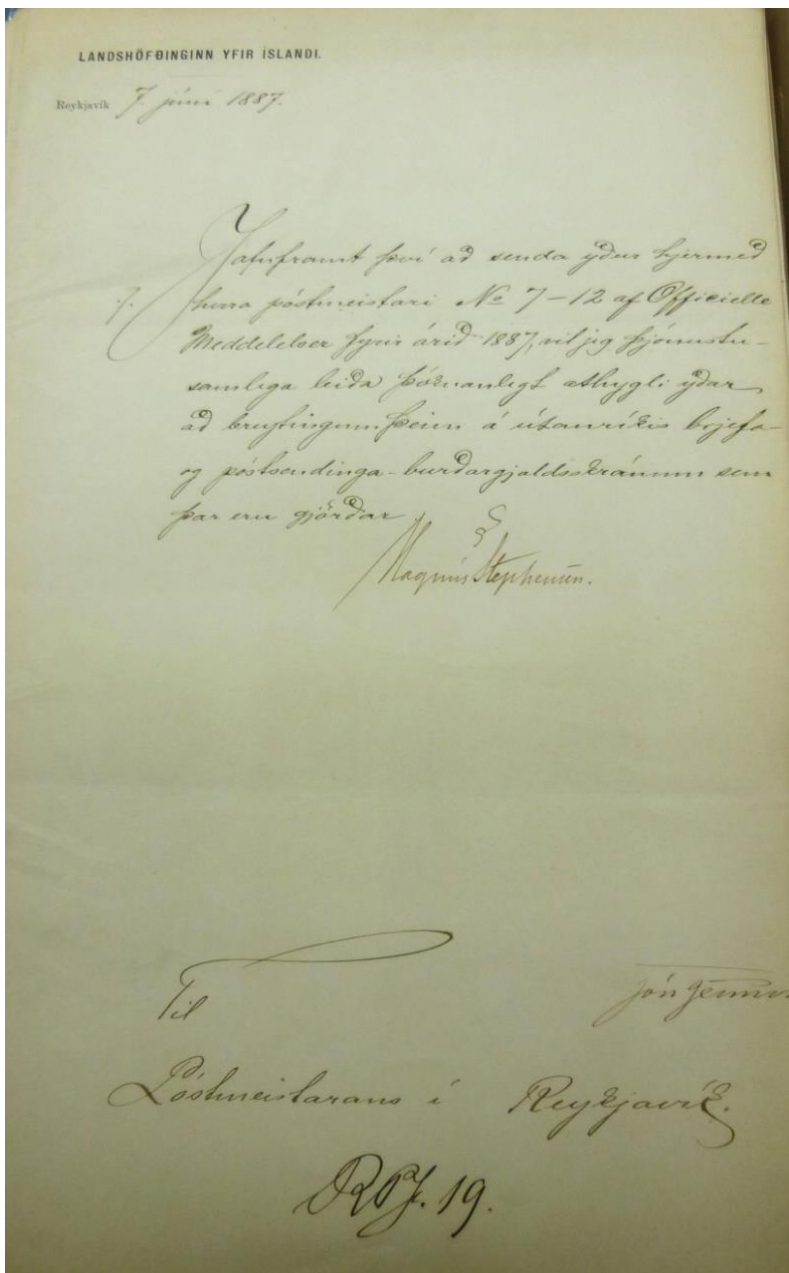 LANDSHÖFÐINGINN YFIR ÍSLANDI.
Reykjavík 7. júní 1887.
Jafnframt því að senda yður hjermeð
herra póstmeistari No 7-12 af Officielle
Meddelelser fyrir árið 1887, vil jeg þjónustu-
samlega leiða þóknanlegt athygli yðar
að breytingum þeim á útanríkis brjefa-
og póstsendinga-burðargjaldsskránum sem
þar eru gjörðar.
Magnús Stephensen.
Jón
Til
Póstmeistarans í Reykjavík.
19.